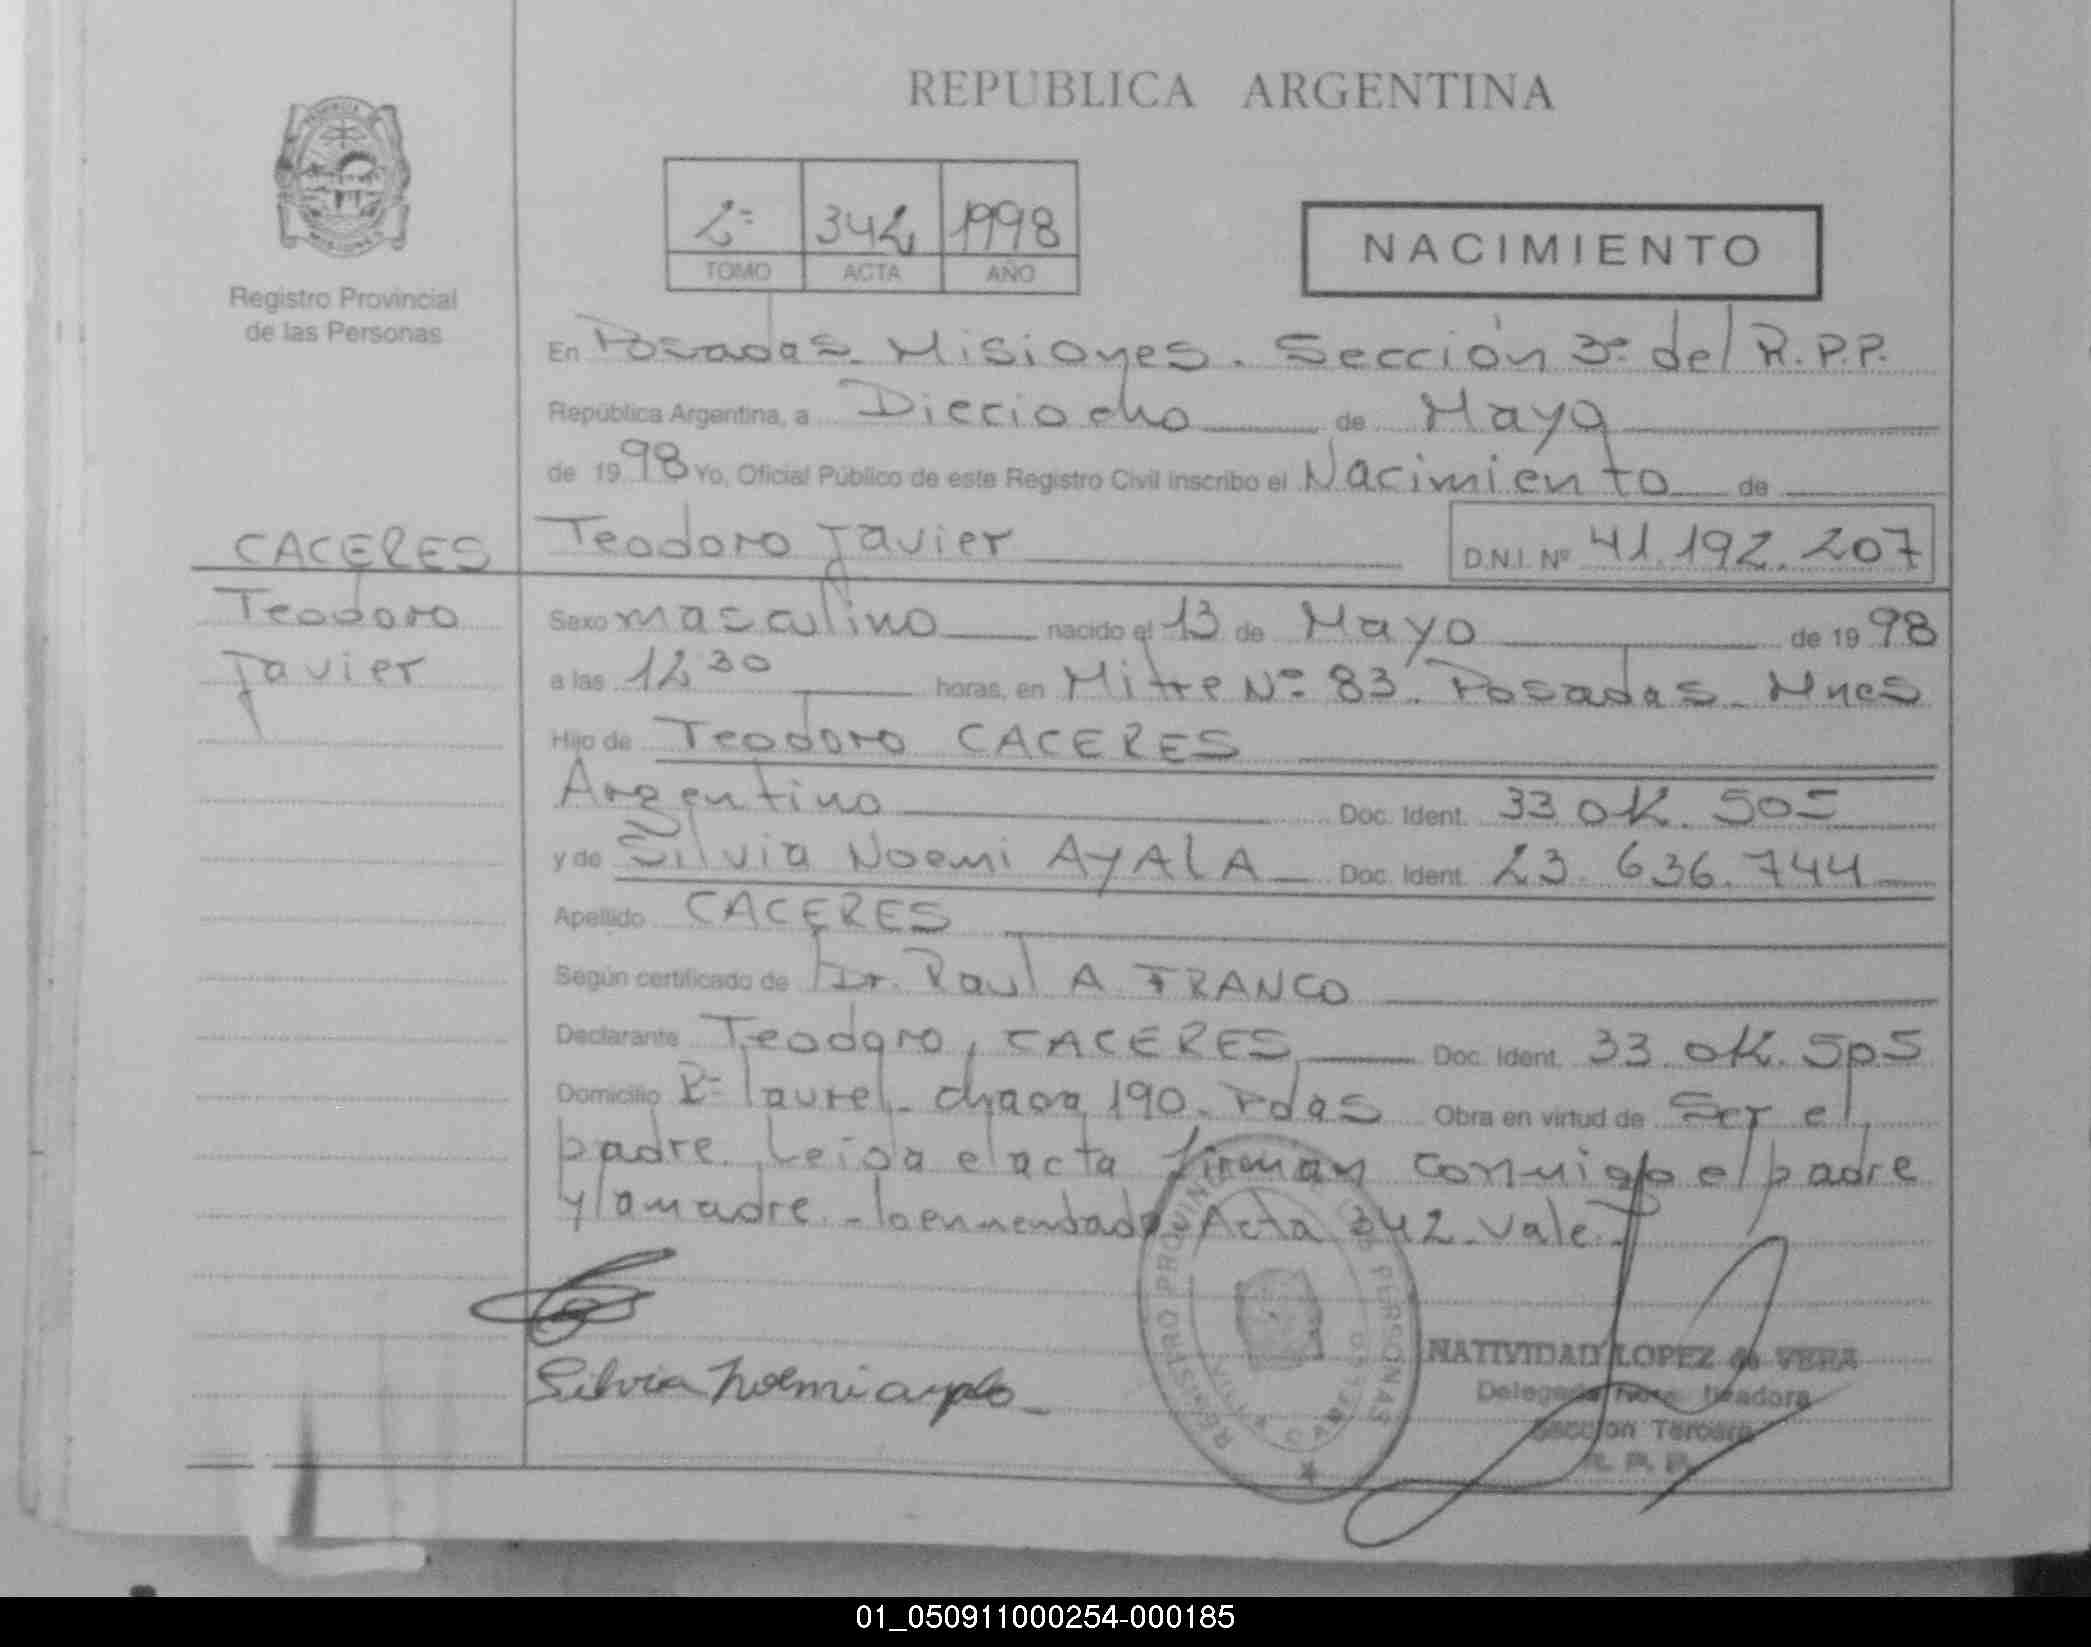 REPUBLICA ARGENTINA
Registro Provincial
de las Personas
2º 342 1998
TOMO ACTA AÑO
NACIMIENTO
En Posadas. Misiones. Sección 3º del R.P.P.
República Argentina, a Dieciocho de Mayo
de 1998 Yo, Oficial Público de este Registro Civil inscribo el Nacimiento de
CACERES Teodoro Javier D.N.I. Nº 41.192.207
Teodoro
Javier
Sexo masculino nacido el 13 de Mayo de 1998
a las 12 30 horas, en Mitre Nº 83. Posadas. Mnes
Hijo de Teodoro CACERES
Argentino Doc. Ident. 33 012. 505
y de Silvia Noemi AYALA Doc. Ident. 23.636.744
Apellido CACERES
Según certificado de Dr. Raul A FRANCO
Declarante Teodoro, CACERES Doc. Ident. 33.012.505
Domicilio Bº laurel. chacra 190. Pdas Obra en virtud de Ser el
padre. Leida el acta firman conmigo el padre
y la madre. - lo enmendado Acta 342. vale.
REGISTRO PROVINCIAL DE LAS PERSONAS
Silvia Noemi ayala
NATIVIDAD LOPEZ de VERA
Delegada
Sección Tercera
R. P. P.
01_050911000254-000185